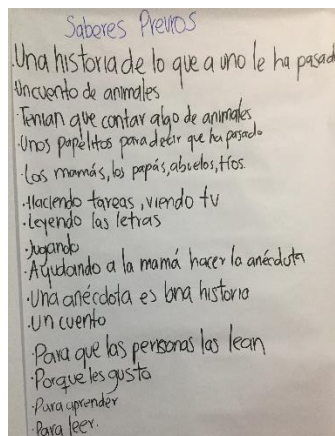 Saberes Previos
·Una historia de lo que a uno le ha pasado
·Un cuento de animales
·Tenían que contar algo de animales
·Unos papelitos para decir que ha pasado
·Los mamás, los papás, abuelos, tíos
·Haciendo tareas, viendo tv
·Leyendo las letras
·Jugando
·Ayudando a la mamá hacer la anécdota
·Una anécdota es una historia
·Un cuento
·Para que las personas las lean
·Porque les gusta
·Para aprender
·Para leer.